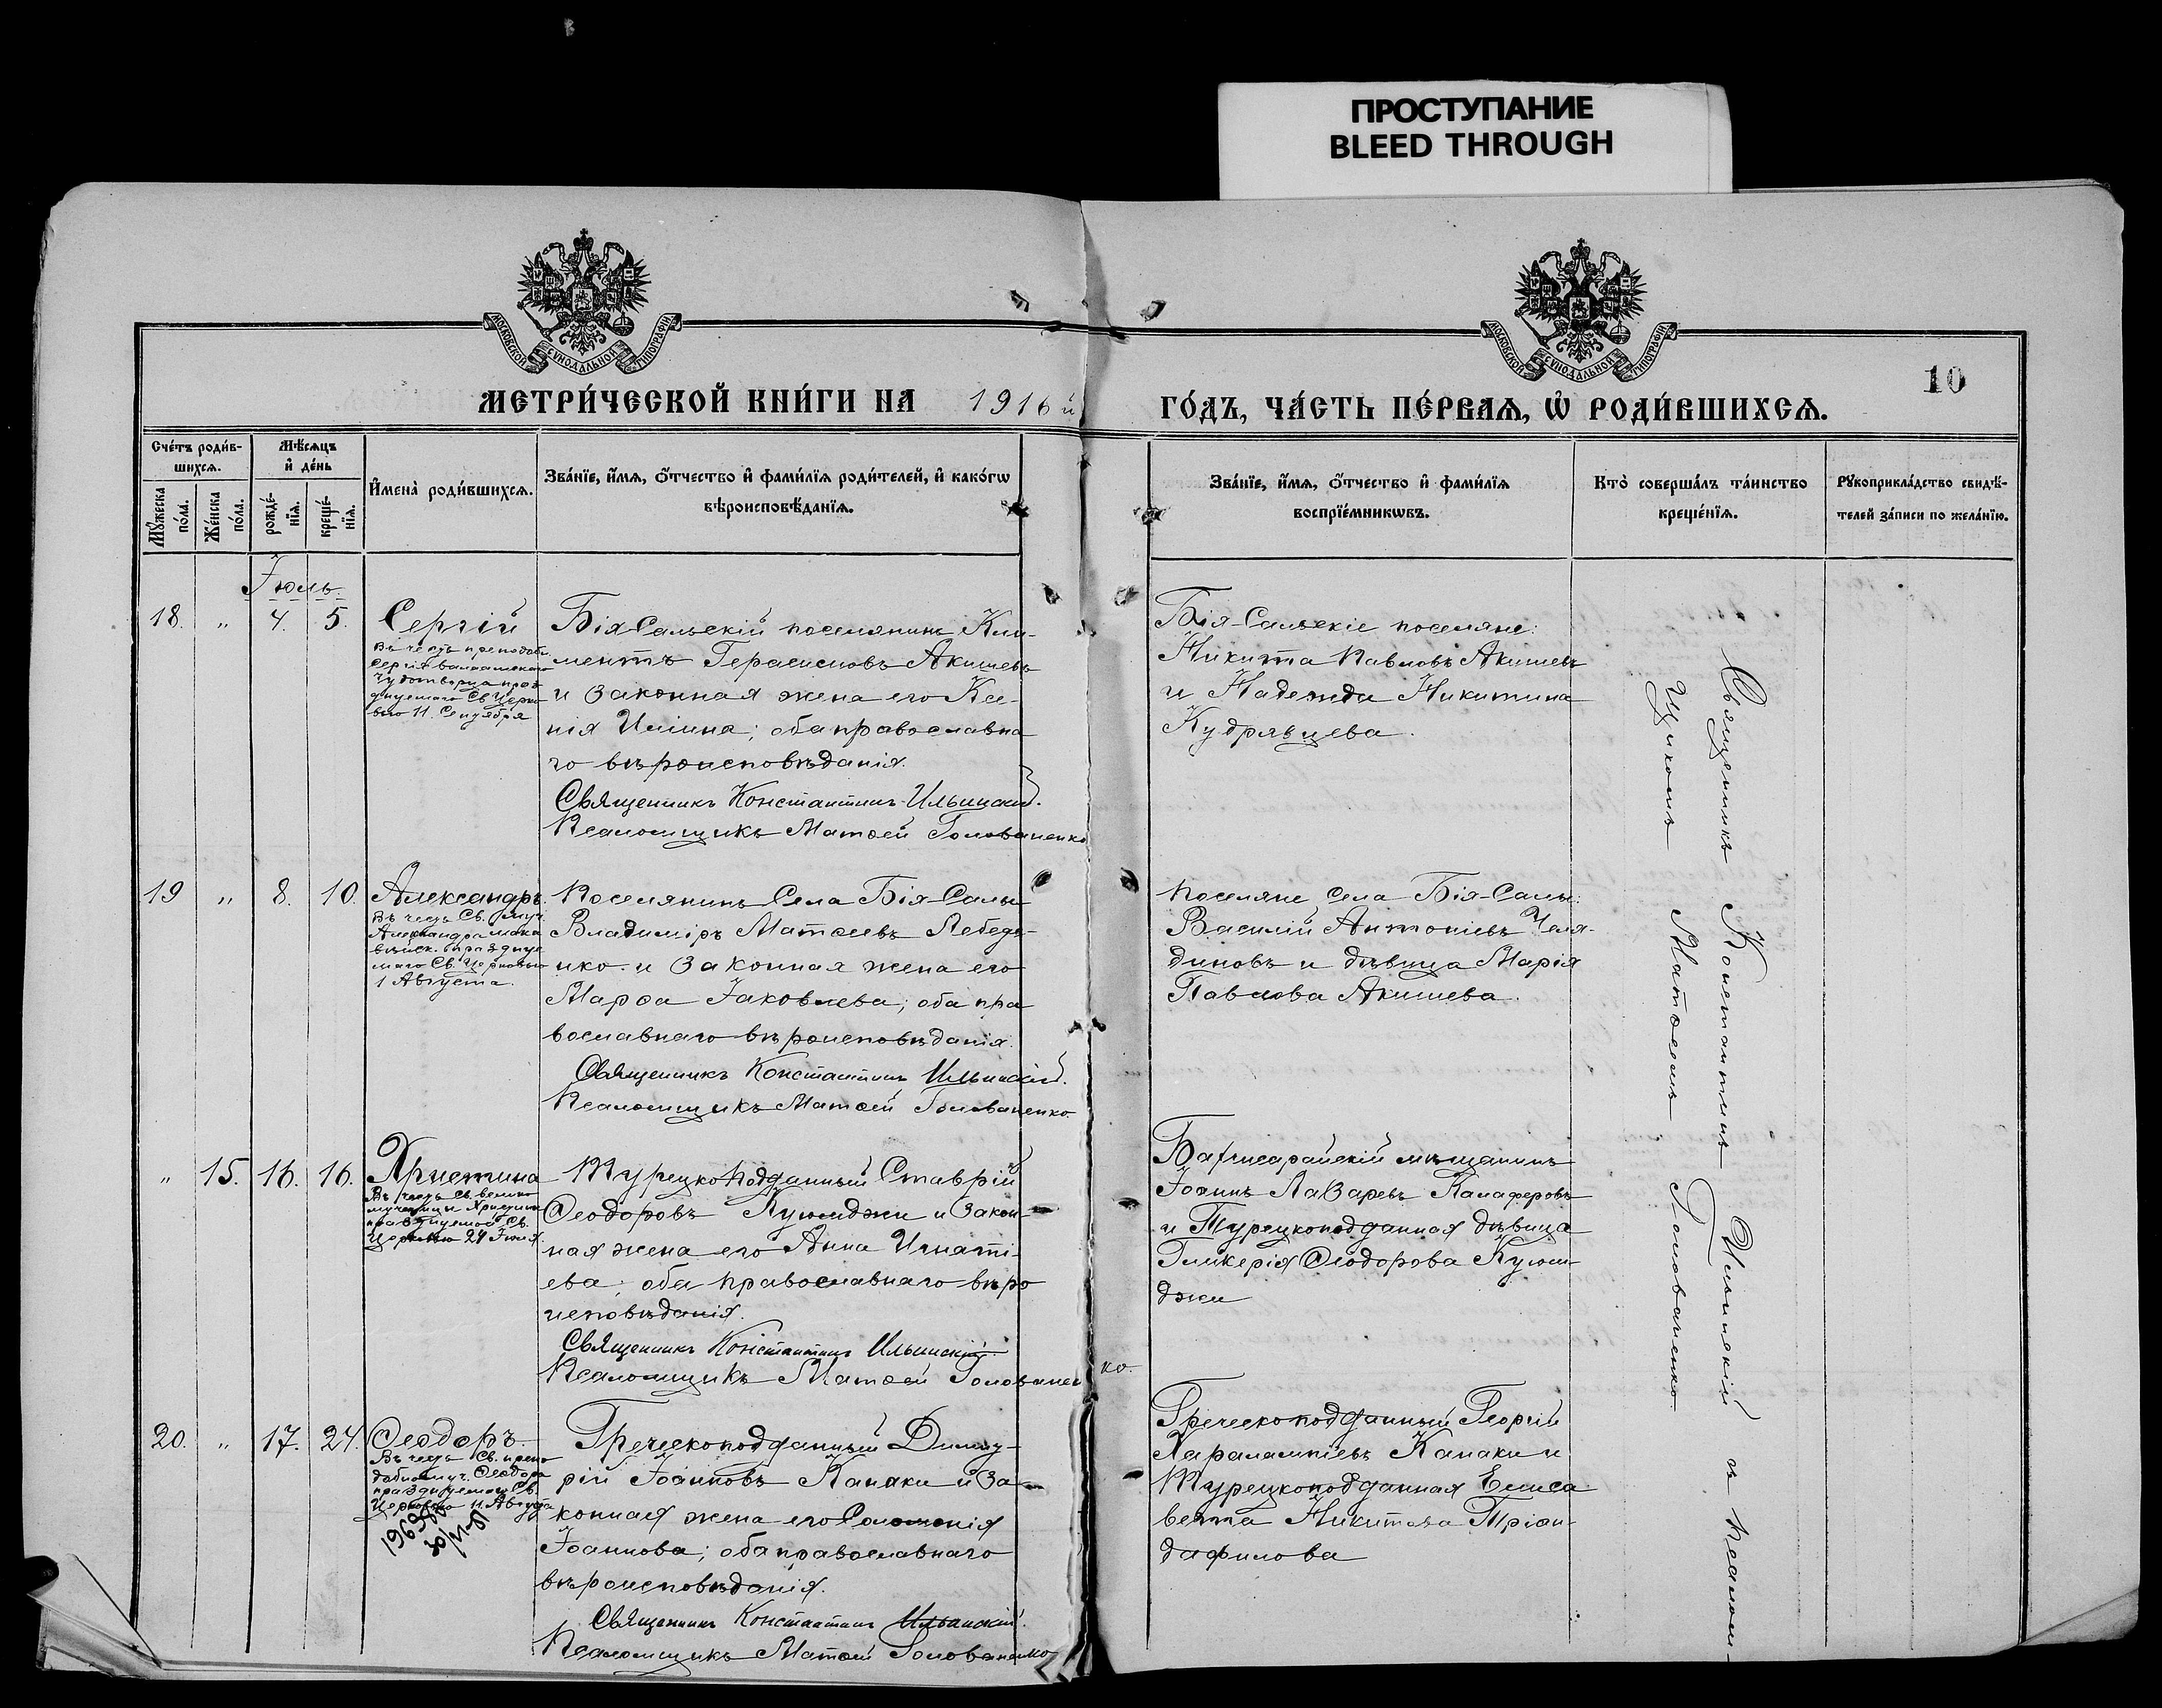 ПРОСТУПАНИЕ
BLEED THROUGH
МОСКОВСКОЙ СѴНОДАЛЬНОЙ ТИПОГРАФІИ
МОСКОВСКОЙ СѴНОДАЛЬНОЙ ТИПОГРАФІИ
10
МЕТРИ́ЧЕСКОЙ КНИ́ГИ НА 1916 й
ГО́ДЪ, ЧА́СТЬ ПЕ́РВАѦ, Ѡ҆ РОДИ́ВШИХСѦ.
Сче́тъ роди́в-
шихсѧ.
Мꙋ́жеска по́ла.
Же́нска по́ла.
Мѣ́сѧцъ
и҆ де́нь
рожде́-
нїѧ.
креще́-
нїѧ.
И҆мена̀ роди́вшихсѧ.
Зва́нїе, и҆́мѧ, ѻ҆́тчество и҆ фами́лїѧ роди́телей, и҆ како́гѡ
вѣроисповѣ́данїѧ.
Зва́нїе, и҆́мѧ, ѻ҆́тчество и҆ фами́лїѧ
воспрїе́мникѡвъ.
Кто̀ соверша́лъ та́инство
креще́нїѧ.
Рꙋкоприкла́дство свидѣ́-
телей за́писи по жела́нїю.
Іюль.
18. „ 4. 5. Сергій
Въ честь преподоб.
Сергія Валаамскаго
Чудотворца праз
днуемаго Св. Церко
вью 11. Сентября
Бія-Сальскій поселянинъ Кли-
ментъ Герасимовъ Акишевъ
и законная жена его Ксе-
нія Ильина; оба православна
го вѣроисповѣданія.
Священникъ Константинъ Ильинскій.
Псаломщикъ Матѳей Голованенко
Бія-Сальскіе поселяне:
Никита Павловъ Акишевъ
и Надежда Никитина
Кудрявцева.
19 „ 8. 10. Александръ.
Въ честь Св. Муч.
Александра
праздnuе
маго Св. Церковью
1 Августа.
Поселянинъ Села Бія-Салы
Владиміръ Матѳеевъ Лебедь-
ко и законная жена его
Марѳа Іаковлева; оба пра
вославнаго вѣроисповѣданія.
Священникъ Константинъ Ильинскій.
Псаломщикъ Матѳей Голованенко.
Поселяне Села Бія-Салы:
Василій Антоніевъ Челя-
диновъ и дѣвица Марія
Павлова Акишева.
„ 15. 16. 16. Христина
Въ честь Св. велико
мученицы Христины
празднуемой Св.
Церковью 24 Іюля.
Турецкоподданный Ставрій
Ѳеодоровъ Куюмджи и закон-
ная жена его Анна Игнаті-
ева; оба православнаго вѣро
исповѣданія.
Священникъ Константинъ Ильинскій.
Псаломщикъ Матѳей Голованенко.
Бахчисарайскій мѣщанинъ
Іоаннъ Лазаревъ Калаферовъ
и Турецкоподданная дѣвица
Гликерія Ѳеодорова Куюм-
джи
20. „ 17. 24. Ѳеодоръ.
Въ честь Св. препо
добномуч. Ѳеодора
празднуемаго Св.
Церковью 11. Августа
Греческоподданный Димит-
рій Іоанновъ Канаки и за-
конная жена его Соломонія
Іоаннова; оба православнаго
вѣроисповѣданія.
Священникъ Константинъ Ильинскій.
Псаломщикъ Матѳей Голованенко
Греческоподданный Георгій
Харалампіевъ Канаки и
Турецкоподданная Елиса
вета Никитова Тріан-
дафилова
Священникъ Константинъ Ильинскій съ псалом-
щикомъ Матѳеемъ Голованенко.